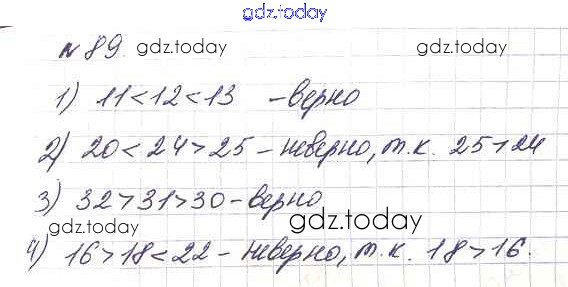 gdz.today
№ 89. gdz.today gdz.today
1) 11<12<13 - верно
2) 20<24>25 - неверно, т.к. 25>24
3) 32>31>30 - верно
gdz.today gdz.today
4) 16>18<22 - неверно, т.к. 18>16.